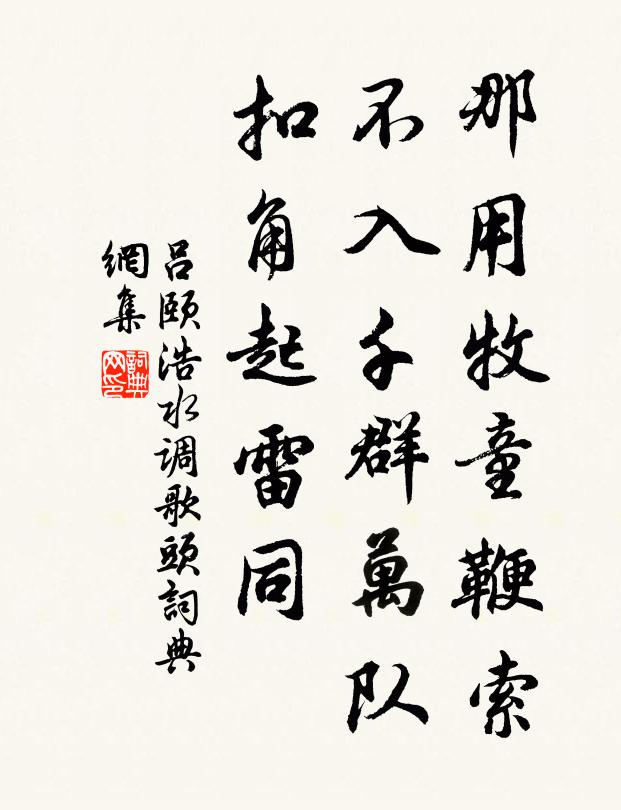 那用牧童鞭索
不入千群萬队
扣角起雷同
吕颐浩水调歌頭詞典
網集
詞典
网印